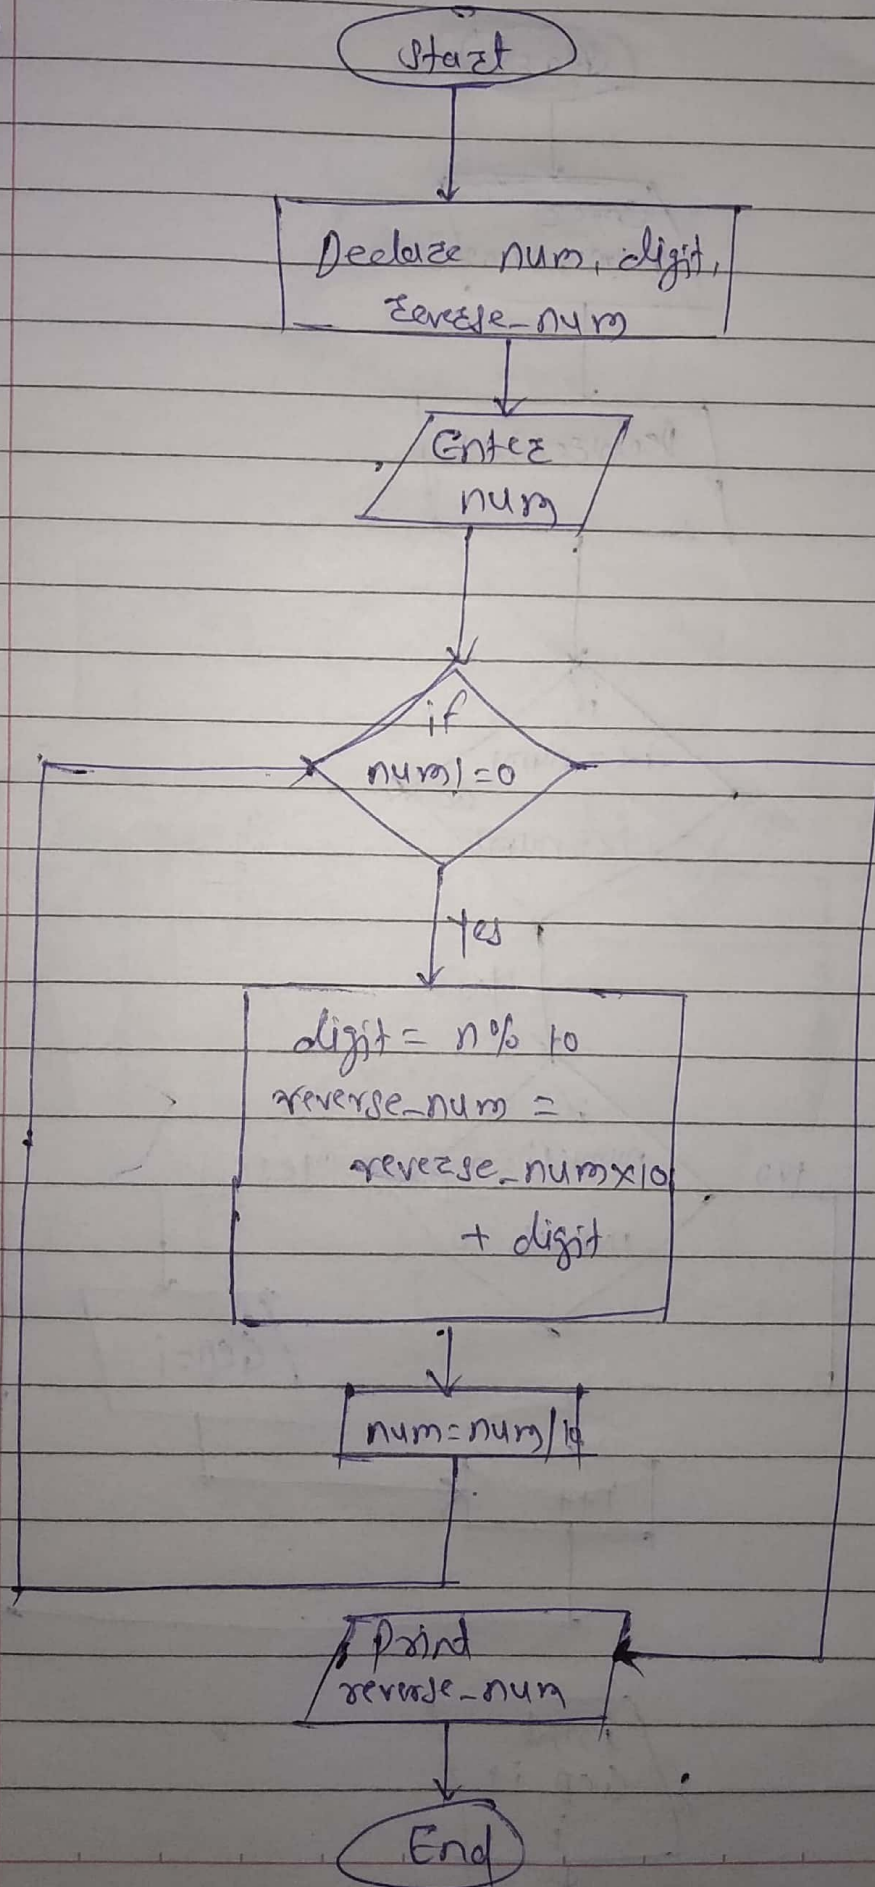 Start
Declare num, digit,
reverse_num
Enter
num
if
num!=0
Yes
digit = n% 10
reverse_num =
reverse_num×10
+ digit
num=num/10
Print
reverse_num
End